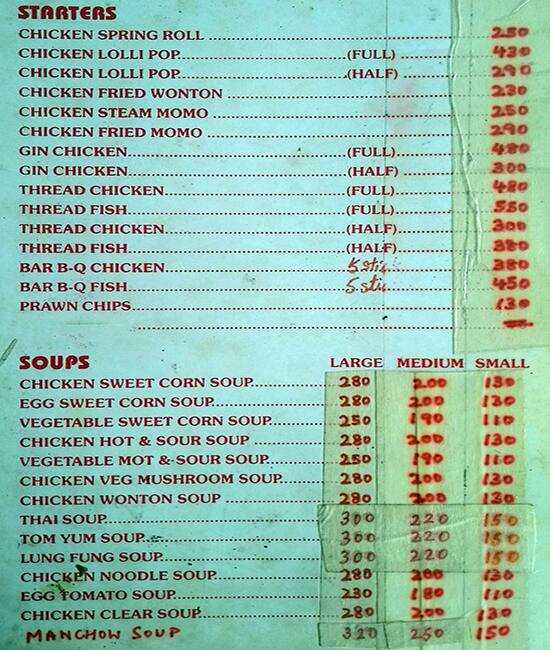 STARTERS
CHICKEN SPRING ROLL 250
CHICKEN LOLLI POP (FULL) 430
CHICKEN LOLLI POP (HALF) 290
CHICKEN FRIED WONTON 230
CHICKEN STEAM MOMO 250
CHICKEN FRIED MOMO 290
GIN CHICKEN (FULL) 480
GIN CHICKEN (HALF) 300
THREAD CHICKEN (FULL) 480
THREAD FISH (FULL) 550
THREAD CHICKEN (HALF) 300
THREAD FISH (HALF) 380
BAR B-Q CHICKEN 5 stic 380
BAR B-Q FISH 5 stic 450
PRAWN CHIPS 130
SOUPS LARGE MEDIUM SMALL
CHICKEN SWEET CORN SOUP 280 200 130
EGG SWEET CORN SOUP 280 200 130
VEGETABLE SWEET CORN SOUP 250 190 110
CHICKEN HOT & SOUR SOUP 280 200 130
VEGETABLE MOT & SOUR SOUP 250 190 110
CHICKEN VEG MUSHROOM SOUP 280 200 130
CHICKEN WONTON SOUP 280 200 130
THAI SOUP 300 220 150
TOM YUM SOUP 300 220 150
LUNG FUNG SOUP 300 220 150
CHICKEN NOODLE SOUP 280 200 130
EGG TOMATO SOUP 230 180 110
CHICKEN CLEAR SOUP 280 200 130
MANCHOW SOUP 320 250 150